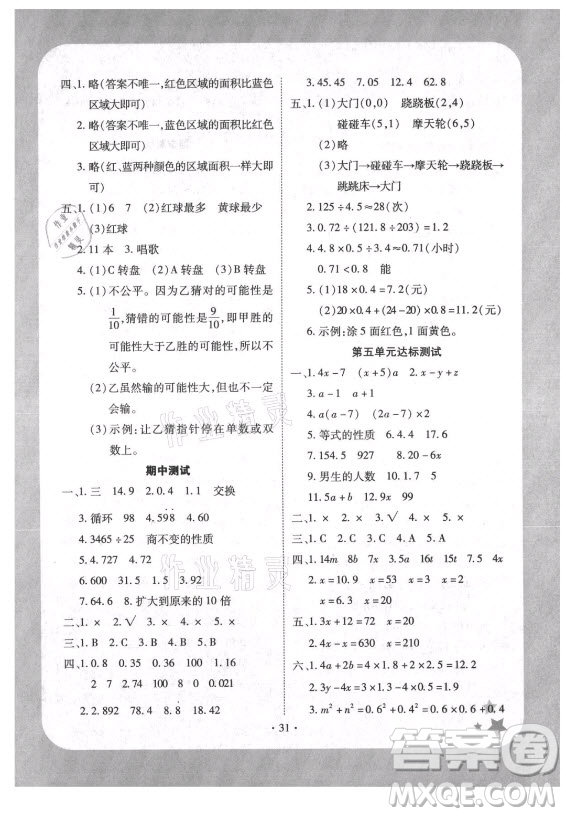 四、1. 略(答案不唯一,红色区域的面积比蓝色
区域大即可)
2. 略(答案不唯一,蓝色区域的面积比红色
区域大即可)
3. 略(红、蓝两种颜色的区域面积一样大即
可)
五、1. (1)6 7 (2)红球最多 黄球最少
(3)红球
2. 11本 3. 唱歌
4. (1)C转盘 (2)A转盘 (3)B转盘
5. (1)不公平。因为乙猜对的可能性是
1/10,猜错的可能性是9/10,即甲胜的
可能性大于乙胜的可能性。
(2)乙虽然输的可能性大,但不一定
会输。
(3)示例:让乙猜指针停在单数或双
数上。
期中测试
一、1. 三 14.9 2. 0.4 1.1 交换
3. 循环 98 4. 5̇98̇
5. 3465÷25 商不变的性质
5. 4.727 4.72
6. 600 1.5 3.92
7. 64.6 8. 扩大到原来的10倍
二、1. × 2. √ 3. × 4. ×
三、1. B 2. A 3. B 4. C
四、1. 0.8 0.35 0.16 0.9
2 7 0.23 0.02
2. 2.892 78.4 8.18 6.942
3. 45.45 7.05 12 62.8
五、1. (1)大门(0,0) 跷跷板(2,4)
碰碰车(5,2) 摩天轮(6,5)
(2)略
(3)大门→碰碰车→摩天轮→跷跷板→
跳跳床→大门
2. 125÷4.5≈28(次)
3. 0.72÷(121.8÷203)=1.2(元)
4. 0.71÷(0.45÷0.26)≈0.41(小时)
0.41<0.8 能
5. (1)18×0.4=7.2(元)
(2)20×0.4+(24-20)×0.8=11.2(元)
6. 示例:涂5面红色,1面黄色。
第五单元达标测试
一、1. 4x-7 (x+5)a 2. x-y+z
3. a-1 a+1
4. a(a-7) a+(a-7)
5. 等式的性质 6. ①③
7. 154 927 8. 20-6x
9. 男生的人数 10. 3a
11. 5a+b 12. 8
二、1. × 2. × 3. √ 4. × 5. √
三、1. C 2. C 3. C 4. A 5. A
四、1. 14m 8b 7x 3.5a 16t 15t
2. x=10.9 x=53 x=3
x=9 x=13 x=0.2
五、1. 3x+12=72 x=20
2. 4x-x=630 x=210
六、1. 20+5a=20+5×12=80
2. 3y-4x=3×5-4×0.7=12.2
3. m²+n²=0.6×0.6+0.4×0.4
· 31 ·
作业精灵
作业精灵
答案圈
MXQE.COM